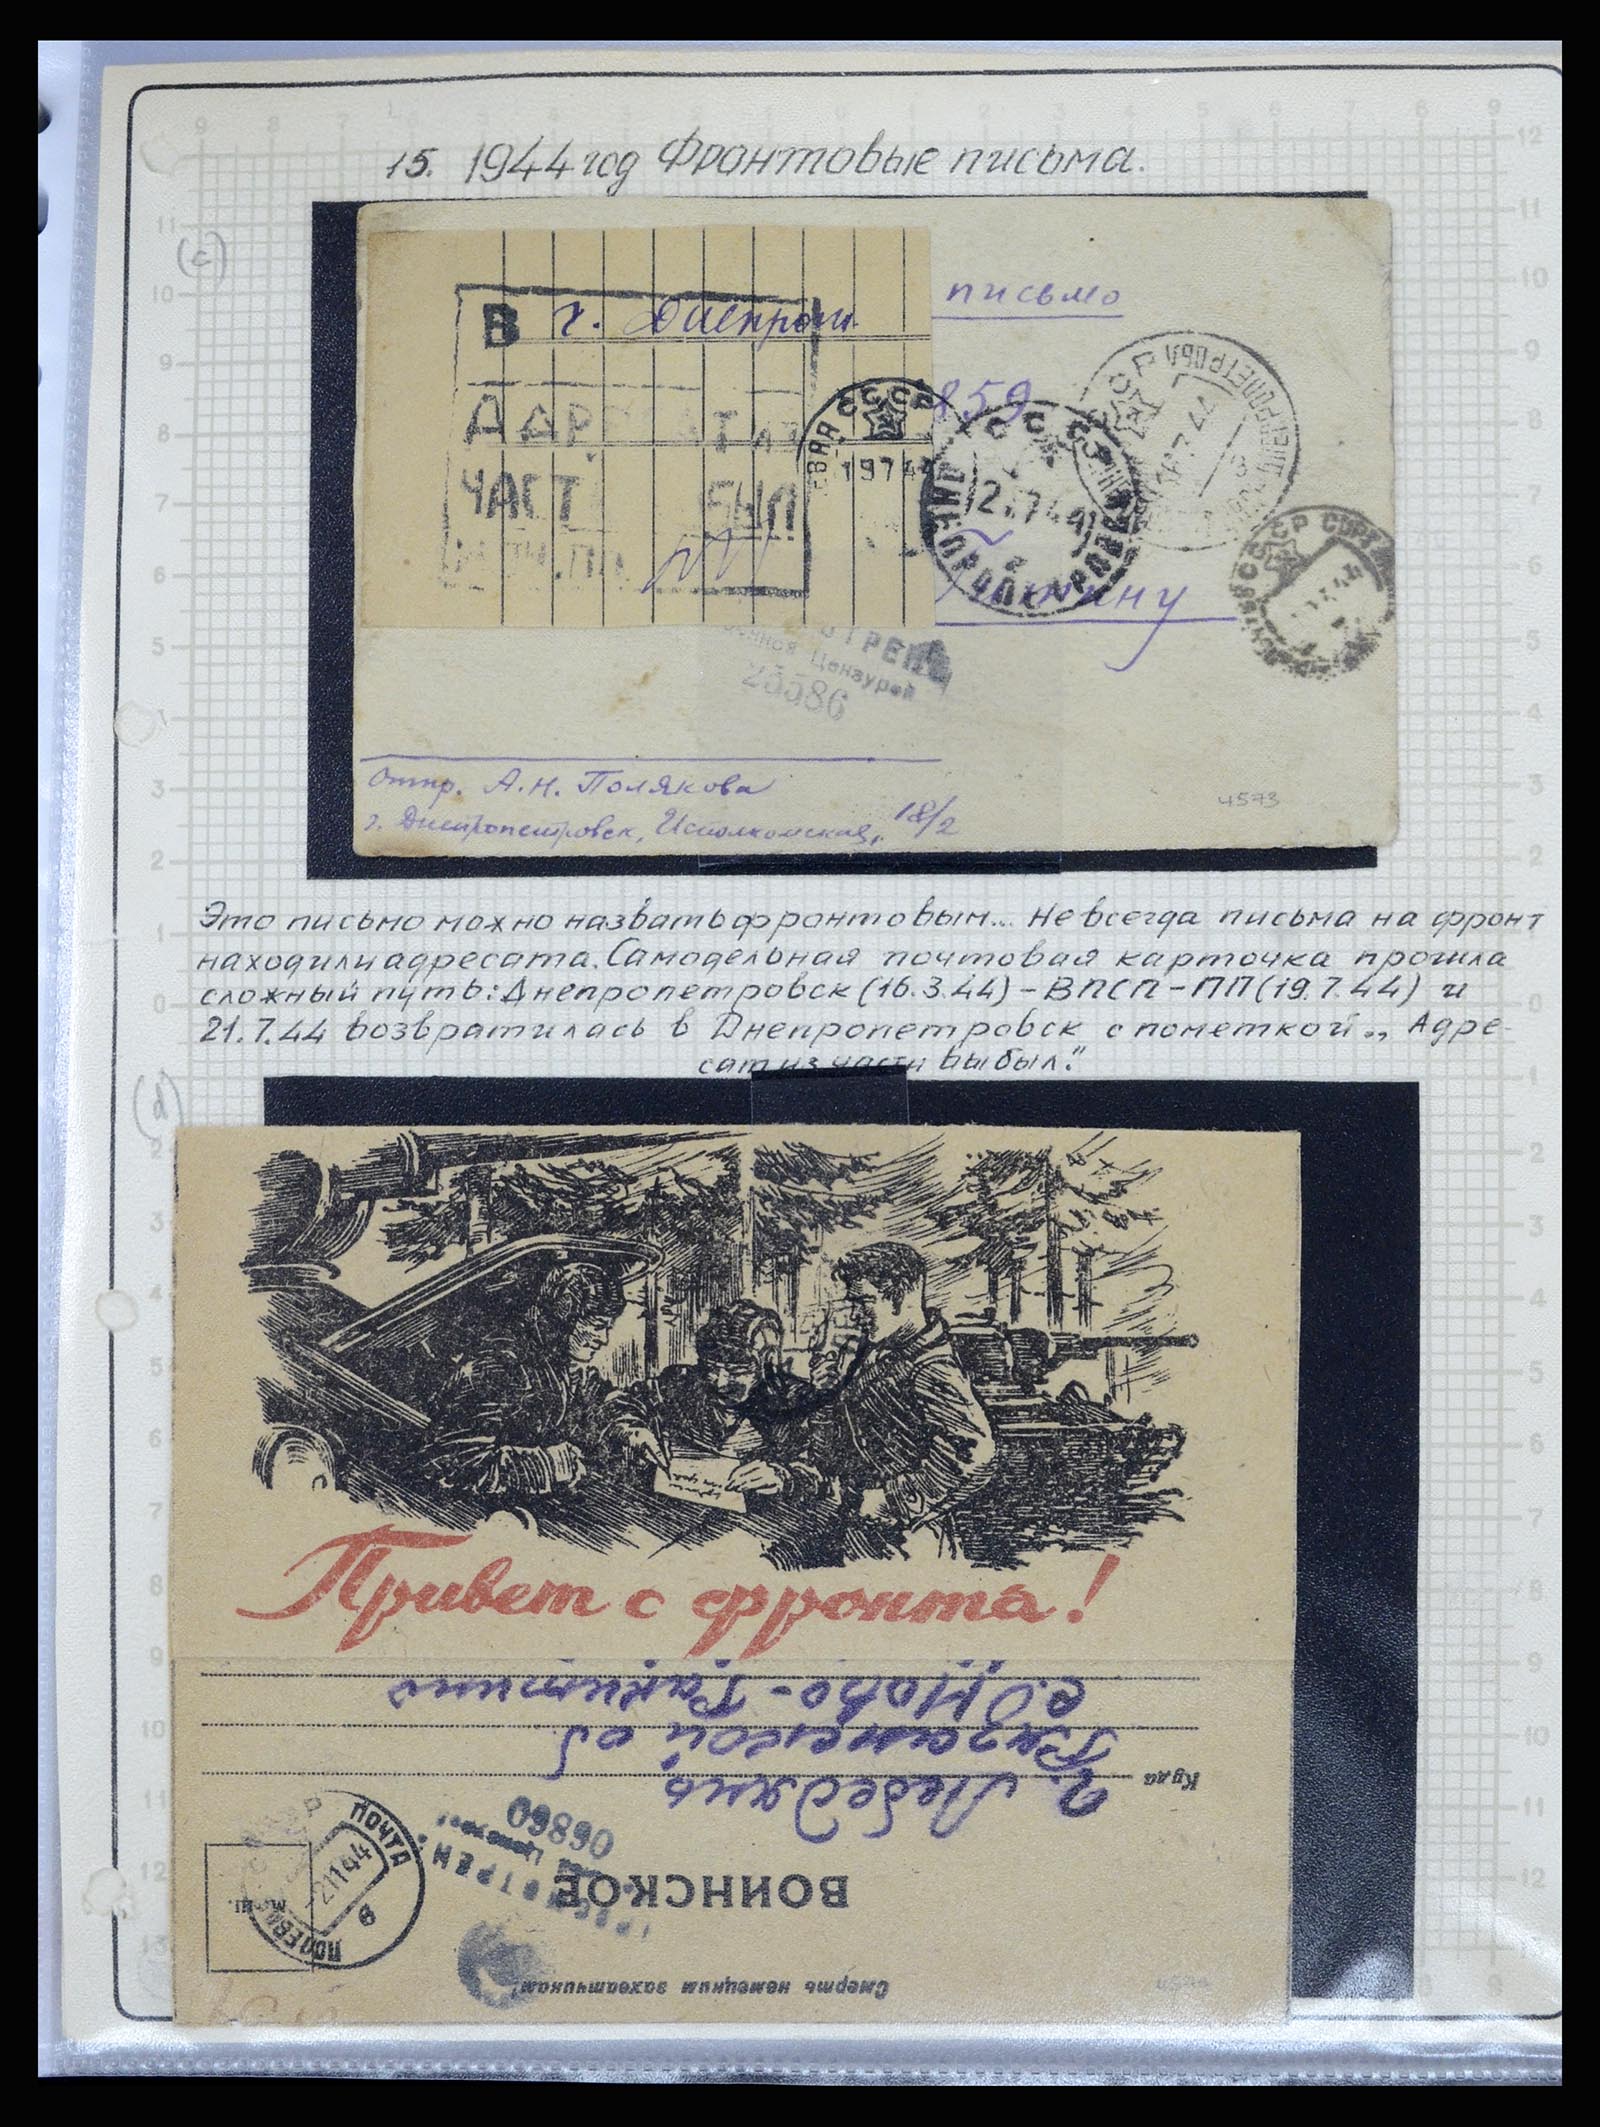 15. 1944 год Фронтовые письма.
(c)
письмо
В г. Днепроп
АДР АТ ИЗ
ЧАСТ БЫЛ
859
СССР
19744
СССР
2 744
ДНЕПРОПЕТРОВСК
СССР
Военной Цензурой
25586
Отпр. А.Н. Полякова
г. Днепропетровск, Исполкомская, 18/2
4573
Это письмо можно назвать фронтовым... Не всегда письма на фронт
находили адресата. Самодельная почтовая карточка прошла
сложный путь: Днепропетровск (16.3.44) – ВПСП – ПП (19.7.44) и
21.7.44 возвратилась в Днепропетровск с пометкой „Адре-
сат из части выбыл."
(d)
Привет с фронта!
с. Ново-Ракитино
Рязанской об
Куда г. Лебедянь
06860
ПОЛЕВАЯ ПОЧТА
21144
в
ВОИНСКОЕ
Смерть немецким захватчикам!
4574